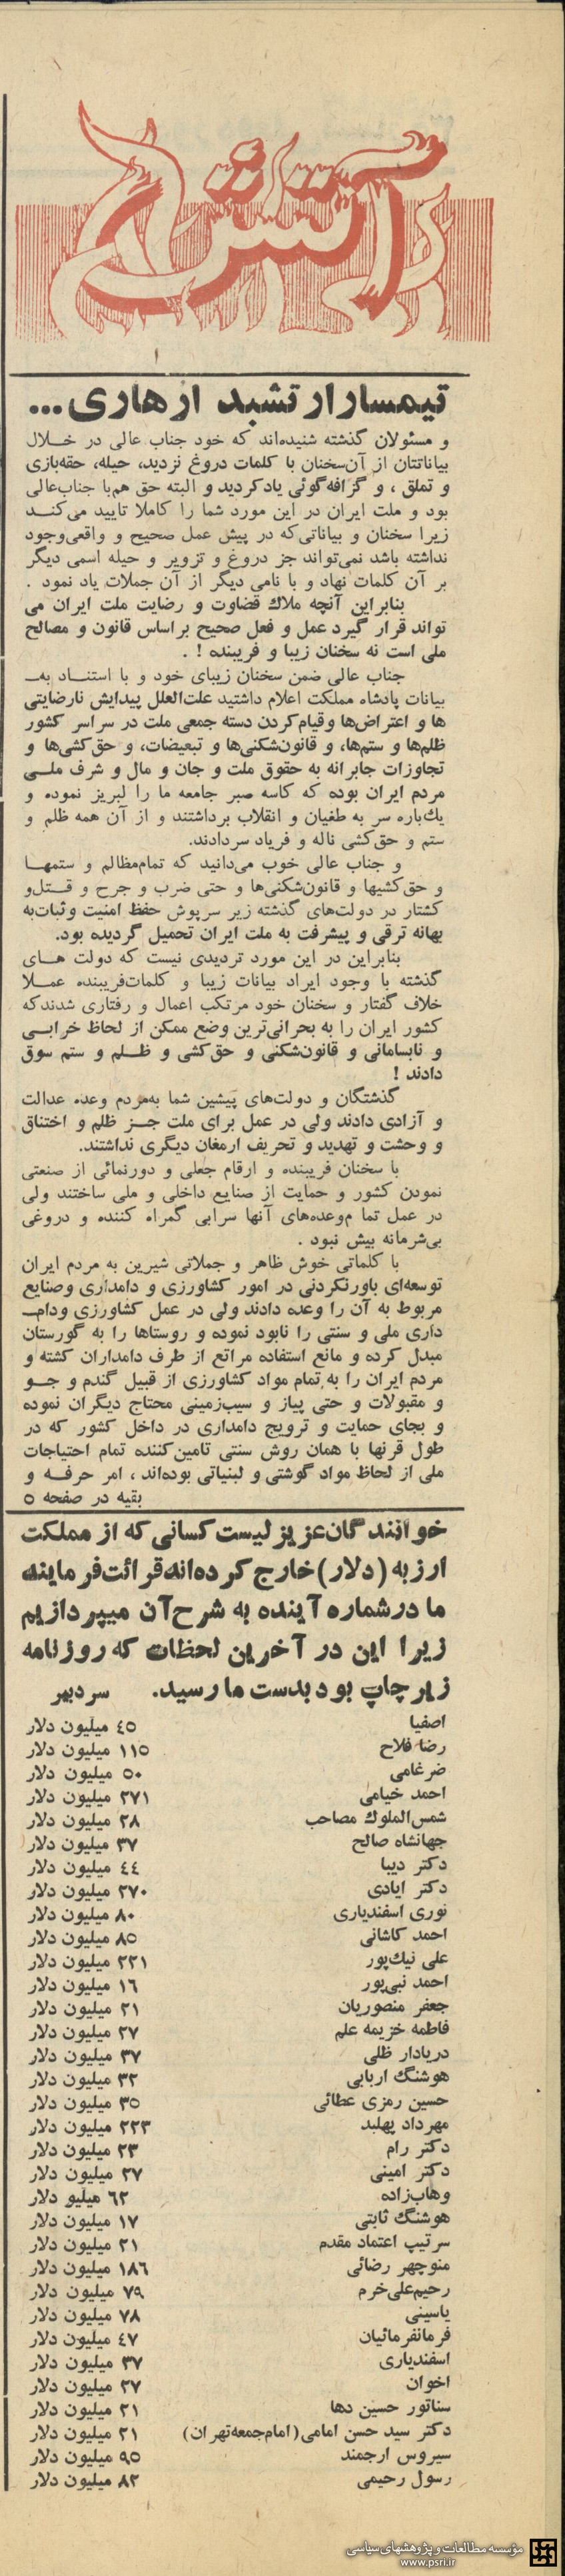 آتش
تیمسار ارتشبد ازهاری...
و مسئولان گذشته شنیده‌اند که خود جناب عالی در خــلال
بیاناتتان از آن‌سخنان با کلمات دروغ نزدید، حیله، حقه‌بازی
و تملق ، و گزافه‌گوئی یاد کردید و البته حق هم‌با جناب‌عالی
بود و ملت ایران در این مورد شما را کاملا تایید می‌کنــد
زیرا سخنان و بیاناتی‌که در پیش عمل صحیح و واقعی‌وجود
نداشته باشد نمی‌تواند جز دروغ و تزویر و حیله اسمی دیگر
بر آن کلمات نهاد و با نامی دیگر از آن جملات یاد نمود .
بنابراین آنچه ملاك قضاوت و رضایت ملت ایران می
تواند قرار گیرد عمل و فعل صحیح براساس قانون و مصالح
ملی است نه سخنان زیبا و فریبنده ! .
جناب عالی ضمن سخنان زیبای خود و با استنــاد بهــ
بیانات پادشاه مملکت اعلام داشتید علت‌العلل پیدایش نارضایتی
ها و اعتراض‌ها وقیام‌کردن دسته جمعی ملت در سراسر کشور
ظلم‌ها و ستم‌ها، و قانون‌شکنی‌ها و تبعیضات، و حق‌کشی‌ها و
تجاوزات جابرانه به حقوق ملت و جان و مال و شرف ملــی
مردم ایران بوده که کاسه صبر جامعه ما را لبریز نموده و
یك‌باره سر به طغیان و انقلاب برداشتند و از آن همه ظلم و
ستم و حق‌کشی ناله و فریاد سردادند.
و جناب عالی خوب می‌دانید که تمام‌مظالم و ستمهــا
و حق‌کشیها و قانون‌شکنی‌ها و حتی ضرب و جرح و قــتل‌و
کشتار در دولت‌های گذشته زیر سرپوش حفظ امنیت و ثبات‌به
بهانه ترقی و پیشرفت به ملت ایران تحمیل گردیده بود.
بنابراین در این مورد تردیدی نیست که دولت هــای
گذشته با وجود ایراد بیانات زیبا و کلمات‌فریبنده عمــلا
خلاف گفتار و سخنان خود مرتکب اعمال و رفتاری شدندکه
کشور ایران را به بحرانی‌ترین وضع ممکن از لحاظ خرابــی
و نابسامانی و قانون‌شکنی و حق‌کشی و ظــلم و ستم سوق
دادند !
گذشتگان و دولت‌های پیشین شما به‌مردم وعده عدالت
و آزادی دادند ولی در عمل برای ملت جــز ظلم و اختناق
و وحشت و تهدید و تحریف ارمغان دیگری نداشتند.
با سخنان فریبنده و ارقام جعلی و دورنمائی از صنعتی
نمودن کشور و حمایت از صنایع داخلی و ملی ساختند ولی
در عمل تما م‌وعده‌های آنها سرابی گمراه کننده و دروغی
بی‌شرمانه بیش نبود .
با کلماتی خوش ظاهر و جملاتی شیرین به مردم ایران
توسعه‌ای باورنکردنی در امور کشاورزی و دامداری وصنایع
مربوط به آن را وعده دادند ولی در عمل کشاورزی ودامــ
داری ملی و سنتی را نابود نموده و روستاها را به گورستان
مبدل کرده و مانع استفاده مراتع از طرف دامداران گشته و
مردم ایران را به تمام مواد کشاورزی از قبیل گندم و جــو
و مقبولات و حتی پیاز و سیب‌زمینی محتاج دیگران نموده
و بجای حمایت و ترویج دامداری در داخل کشور که در
طول قرنها با همان روش سنتی تامین‌کننده تمام احتیاجات
ملی از لحاظ مواد گوشتی و لبنیاتی بوده‌اند ، امر حرفــه و
بقیه در صفحه ۵
خوانندگان‌عزیز لیست کسانی که از مملکت
ارز به (دلار) خارج کرده‌اند‌قرائت‌فرمایند
ما در شماره آینده به شرح‌آن میپردازیم
زیرا این در آخرین لحظات که روزنامه
زیر چاپ بود بدست ما رسید. سردبیر
اصفیا ۴۵ میلیون دلار
رضا فلاح ۱۱۵ میلیون دلار
ضرغامی ۵۰ میلیون دلار
احمد خیامی ۲۷۱ میلیون دلار
شمس‌الملوك مصاحب ۲۸ میلیون دلار
جهانشاه صالح ۳۷ میلیون دلار
دکتر دیبا ۴۴ میلیون دلار
دکتر ایادی ۲۷۰ میلیون دلار
نوری اسفندیاری ۸۰ میلیون دلار
احمد کاشانی ۸۵ میلیون دلار
علی نیك‌پور ۲۲۱ میلیون دلار
احمد نبی‌پور ۱۶ میلیون دلار
جعفر منصوریان ۲۱ میلیون دلار
فاطمه خزیمه علم ۲۷ میلیون دلار
دریادار ظلی ۳۷ میلیون دلار
هوشنگ اربابی ۳۲ میلیون دلار
حسین رمزی عطائی ۳۵ میلیون دلار
مهرداد پهلبد ۲۲۳ میلیون دلار
دکتر رام ۲۳ میلیون دلار
دکتر امینی ۲۷ میلیون دلار
وهاب‌زاده ۶۲ میلیو دلار
هوشنگ ثابتی ۱۷ میلیون دلار
سرتیپ اعتماد مقدم ۲۱ میلیون دلار
منوچهر رضائی ۱۸۶ میلیون دلار
رحیم‌علی‌خرم ۷۹ میلیون دلار
یاسینی ۷۸ میلیون دلار
فرمانفرمائیان ۴۷ میلیون دلار
اسفندیاری ۳۷ میلیون دلار
اخوان ۲۷ میلیون دلار
سناتور حسین دها ۲۱ میلیون دلار
دکتر سید حسن امامی (امام‌جمعه‌تهران) ۲۱ میلیون دلار
سیروس ارجمند ۹۵ میلیون دلار
رسول رحیمی ۸۲ میلیون دلار
مؤسسه مطالعات و پژوهشهای سیاسی
www.psri.ir